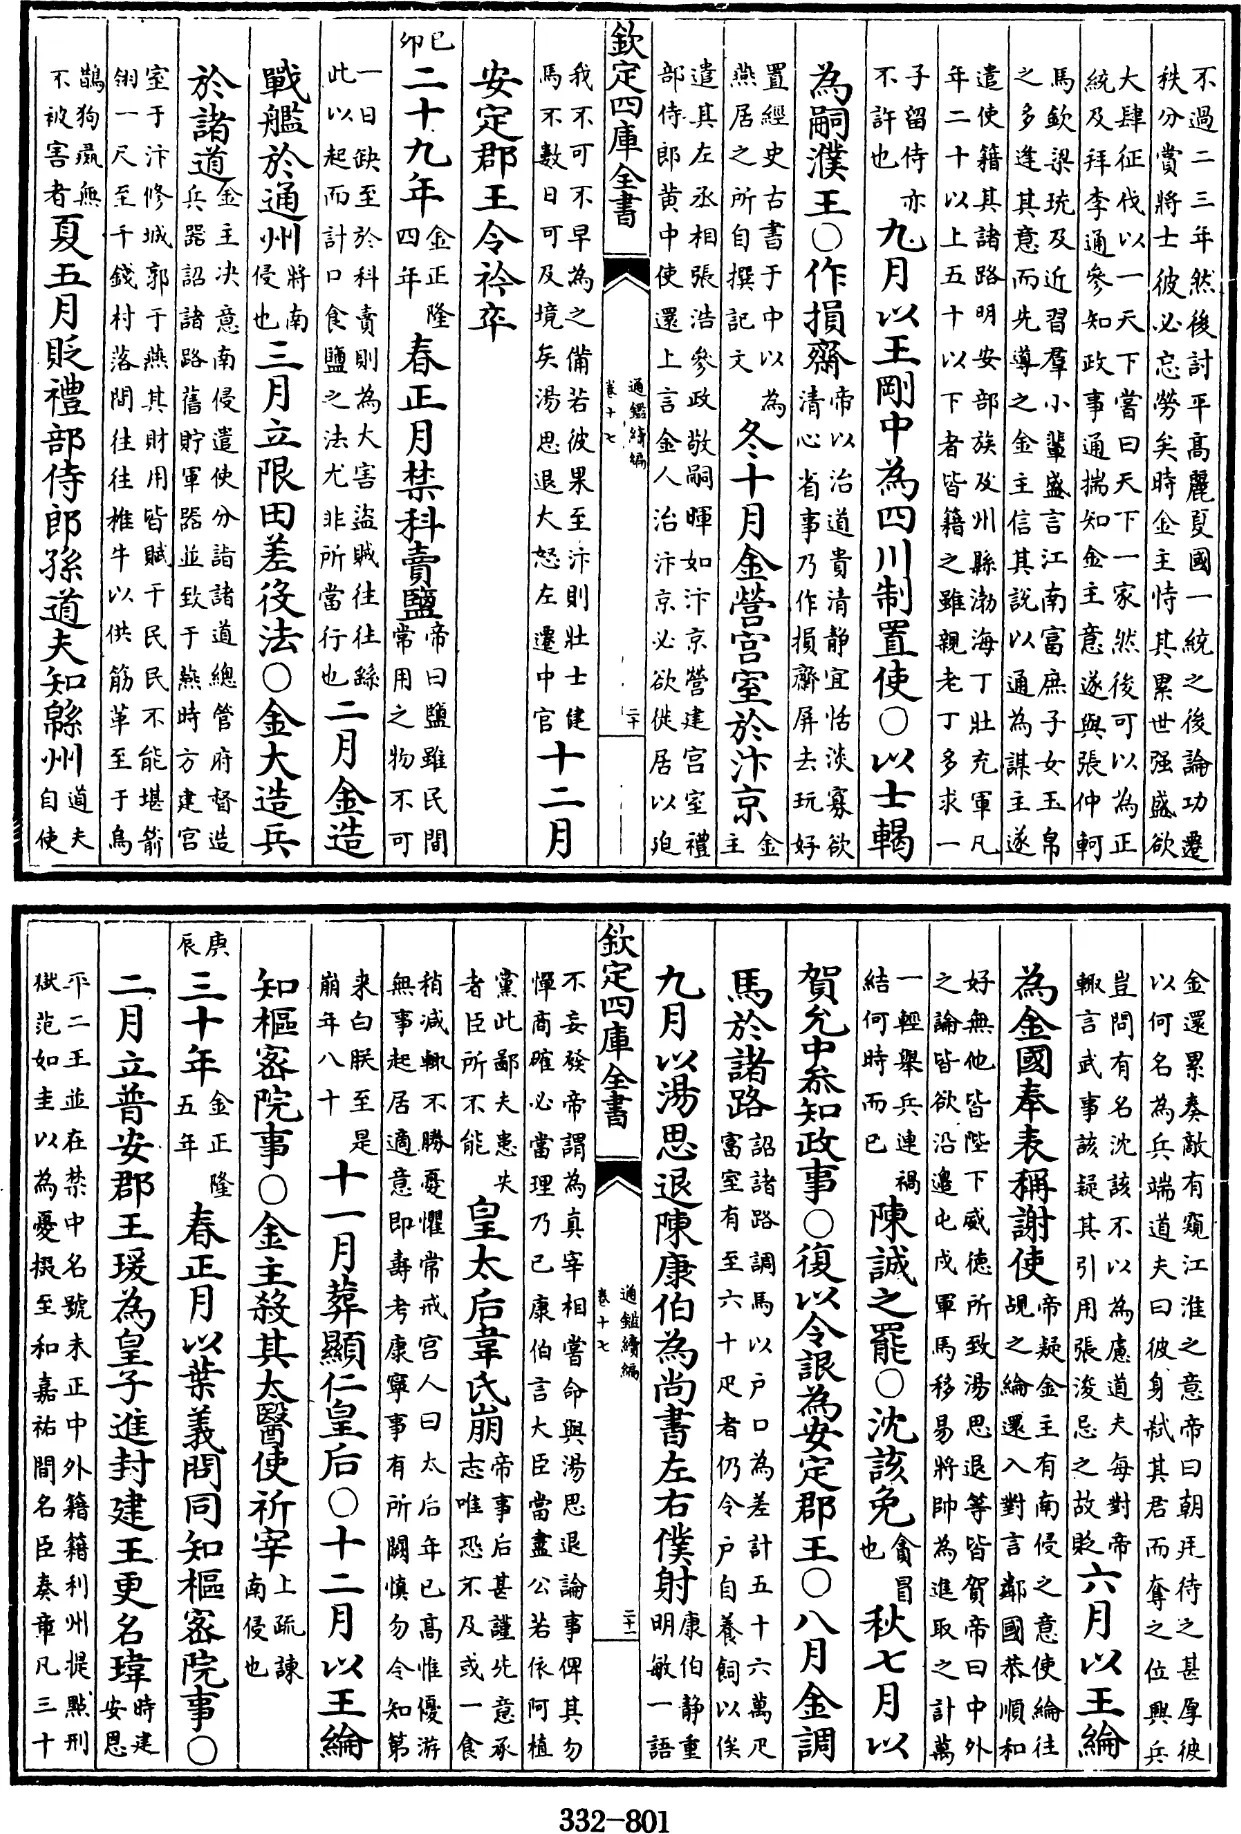 不過二三年然後討平高麗夏國一統之後論功遷
秩分賞將士彼必忘勞矣時金主恃其累世强盛欲
大肆征伐以一天下嘗曰天下一家然後可以為正
統及拜李通參知政事通揣知金主意遂與張仲軻
馬欽梁珫及近習羣小輩盛言江南富庶子女玉帛
之多逢其意而先導之金主信其說以通為謀主遂
遣使籍其諸路明安部族及州縣渤海丁壯充軍凡
年二十以上五十以下者皆籍之雖親老丁多求一
子留侍亦
不許也
九月以王剛中為四川制置使○以士輵
為嗣濮王○作損齋
帝以治道貴清静宜恬淡寡欲
清心省事乃作損齋屏去玩好
置經史古書于中以為
燕居之所自撰記文
冬十月金營宮室於汴京
金
主
遣其左丞相張浩參政敬嗣暉如汴京營建宮室禮
部侍郎黄中使還上言金人治汴京必欲徙居以迫
欽定四庫全書
通鑑續編
卷十七
二十
我不可不早為之備若彼果至汴則壯士健
馬不數日可及境矣湯思退大怒左遷中官
十二月
安定郡王令衿卒
己
卯
二十九年
金正隆
四年
春正月禁科賣鹽
帝曰鹽雖民間
常用之物不可
一日缺至於科責則為大害盜賊往往繇
此以起而計口食鹽之法尤非所當行也
二月金造
戰艦於通州
將南
侵也
三月立限田差役法○金大造兵
於諸道
金主决意南侵遣使分詣諸道總管府督造
兵器詔諸路舊貯軍器並致于燕時方建宮
室于汴修城郭于燕其財用皆賦于民民不能堪箭
翎一尺至千錢村落間往往椎牛以供筋革至于烏
鵲狗彘無
不被害者
夏五月貶禮部侍郎孫道夫知緜州
道夫
自使
金還累奏敵有窺江淮之意帝曰朝廷待之甚厚彼
以何名為兵端道夫曰彼身弑其君而奪之位興兵
豈問有名沈該不以為慮道夫每對帝
輙言武事該疑其引用張浚忌之故貶
六月以王綸
為金國奉表稱謝使
帝疑金主有南侵之意使綸往
覘之綸還入對言鄰國恭順和
好無他皆陛下威徳所致湯思退等皆賀帝曰中外
之論皆欲沿邉屯戍軍馬移易將帥為進取之計萬
一輕舉兵連禍
結何時而已
陳誠之罷○沈該免
貪冒
也
秋七月以
賀允中叅知政事○復以令詪為安定郡王○八月金調
馬於諸路
詔諸路調馬以戸口為差計五十六萬疋
富室有至六十疋者仍令戸自養飼以俟
九月以湯思退陳康伯為尚書左右僕射
康伯静重
明敏一語
欽定四庫全書
通鑑續編
卷十七
二十一
不妄發帝謂為真宰相嘗命與湯思退論事俾其勿
憚商確必當理乃已康伯言大臣當盡公若依阿植
黨此鄙夫患失
者臣所不能
皇太后韋氏崩
帝事后甚謹先意承
志唯恐不及或一食
稍減輙不勝憂懼常戒宮人曰太后年已高惟優游
無事起居適意即壽考康寧事有所闕慎勿令知第
来白朕至是
崩年八十
十一月葬顯仁皇后○十二月以王綸
知樞宻院事○金主殺其太醫使祈宰
上疏諫
南侵也
庚
辰
三十年
金正隆
五年
春正月以葉義問同知樞宻院事○
二月立普安郡王瑗為皇子進封建王更名瑋
時建
安恩
平二王並在禁中名號未正中外籍籍利州提點刑
獄范如圭以為憂掇至和嘉祐間名臣奏章凡三十
332-801